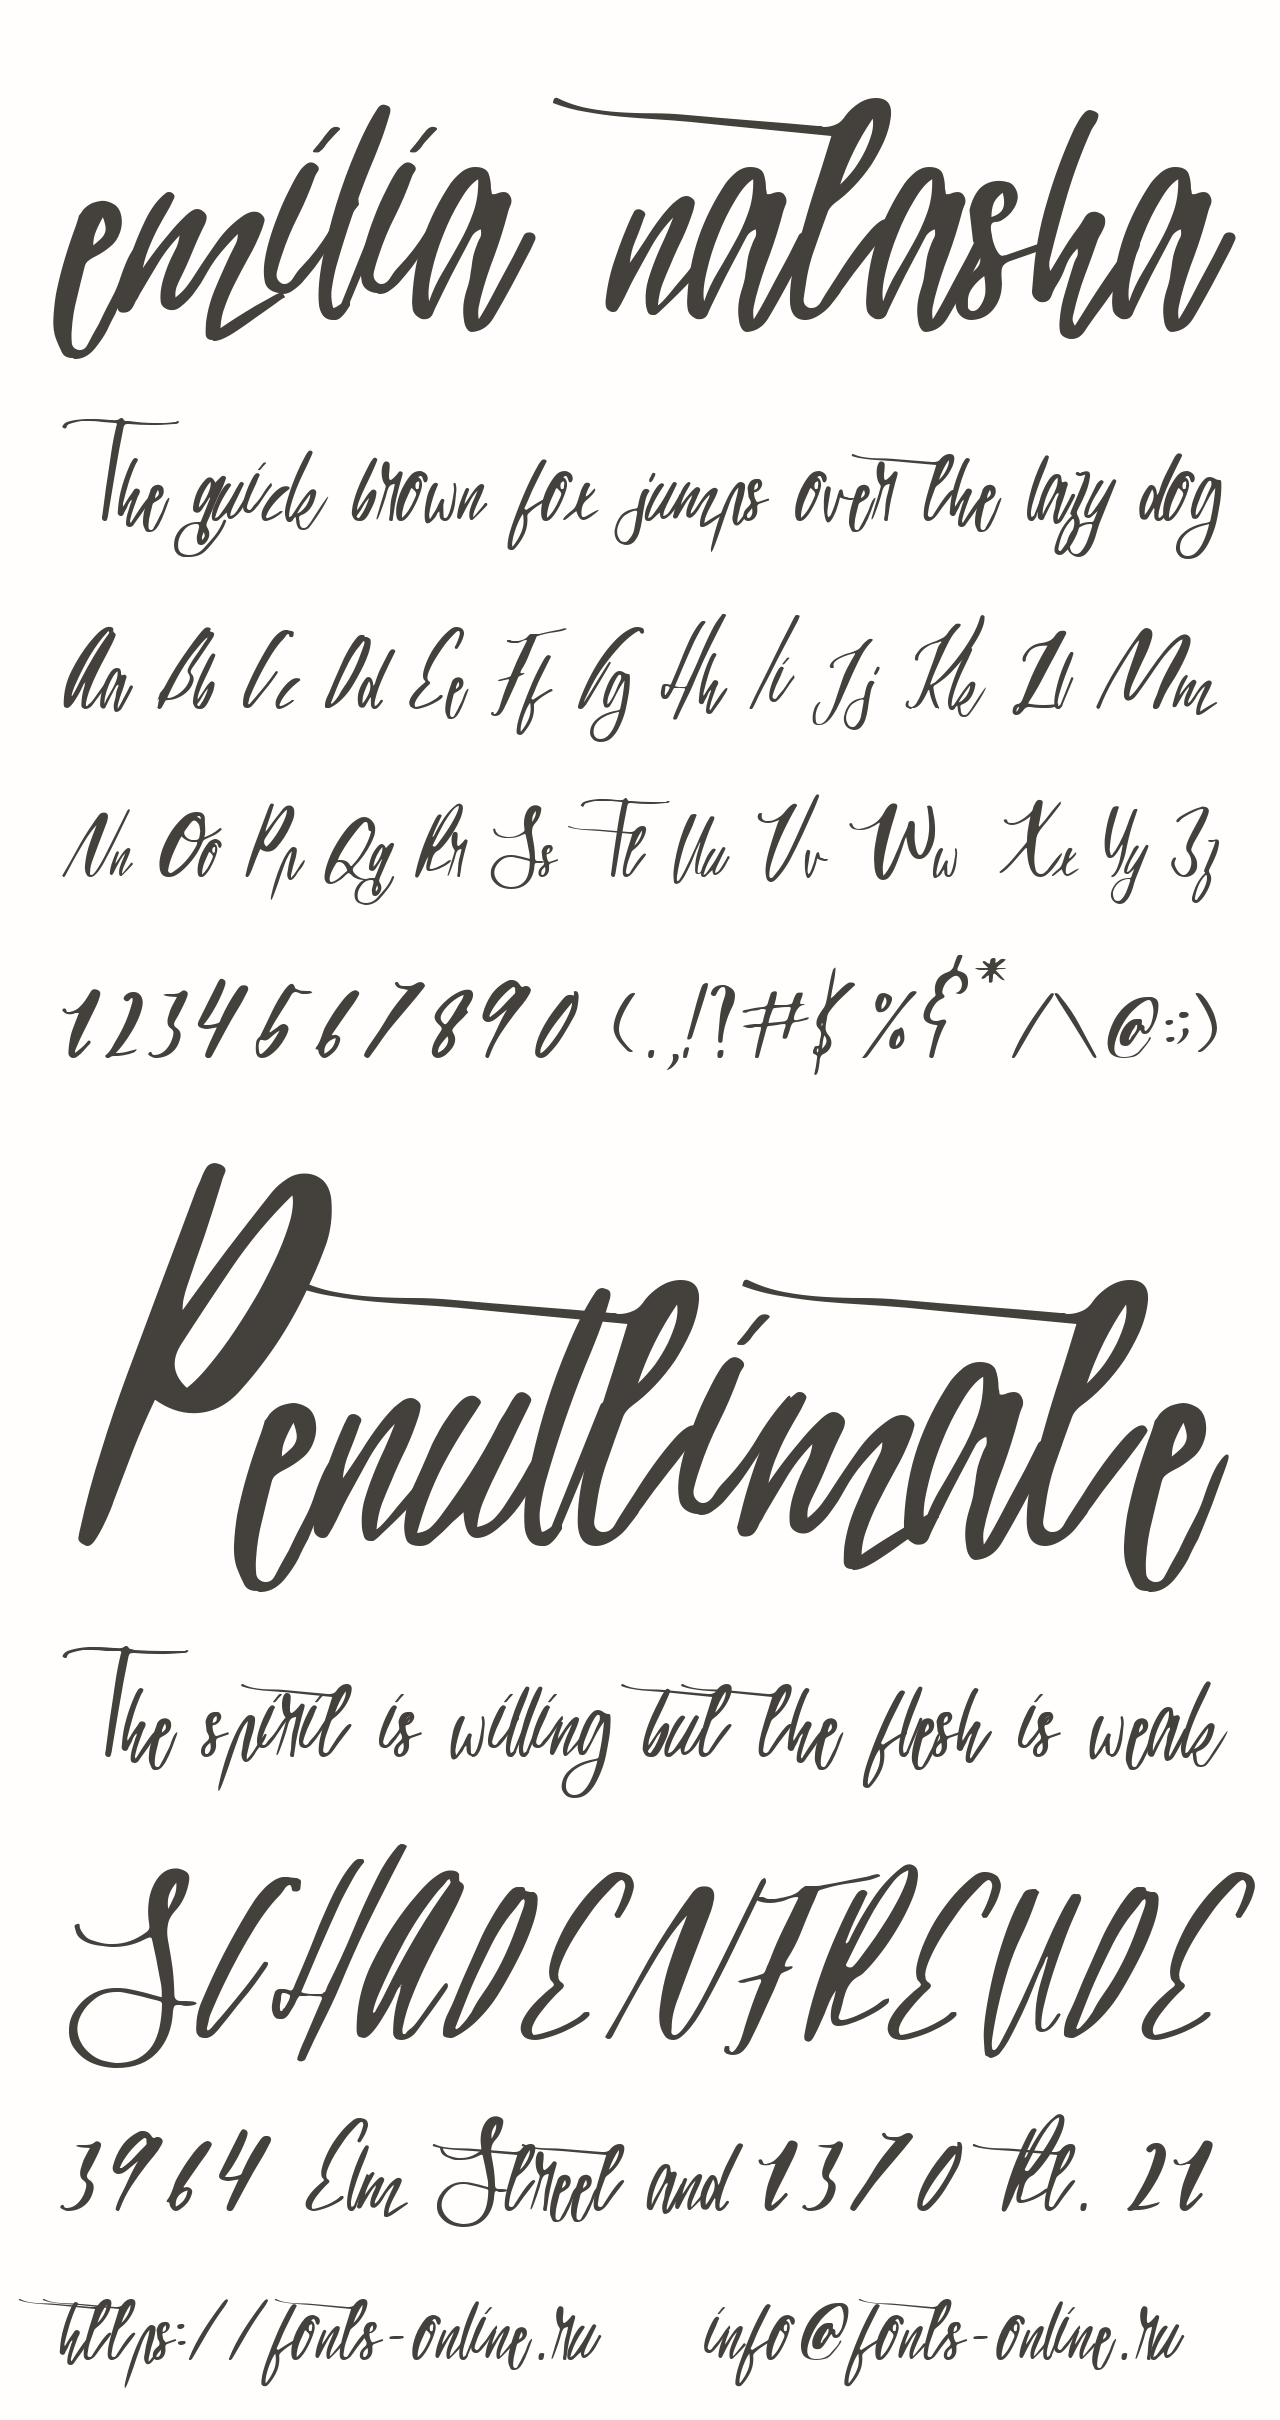 emilia natasha
The quick brown fox jumps over the lazy dog
Aa Bb Cc Dd Ee Ff Gg Hh Ii Jj Kk Ll Mm
Nn Oo Pp Qq Rr Ss Tt Uu Vv Ww Xx Yy Zz
1234567890 (.,!?#$%&* /\@:;)
Penultimate
The spirit is willing but the flesh is weak
SCHADENFREUDE
3964 Elm Street and 1370 Rt. 21
https://fonts-online.ru info@fonts-online.ru